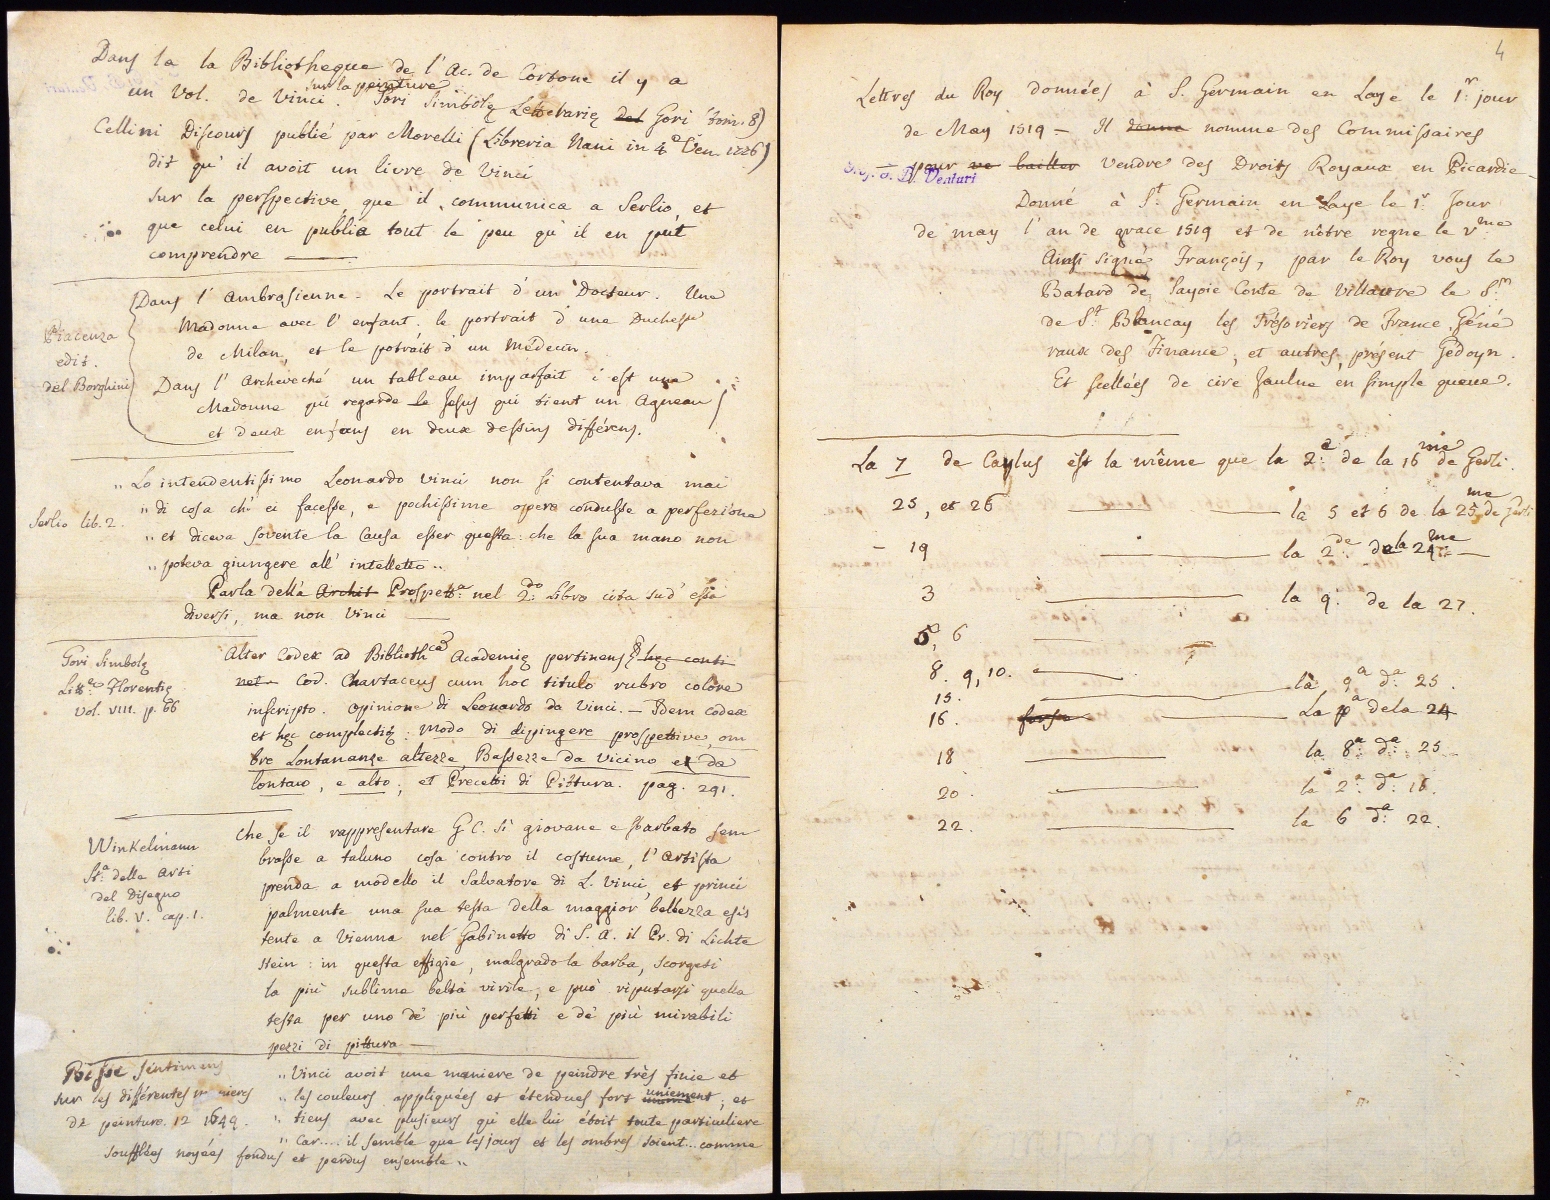 Dans la la Bibliotheque de l'Ac. de Cortone il y a
un Vol. de Vinci. sur la peinture Gori Simbolę Letterarię del Gori tom. 8)
Cellini Discours publié par Morelli (Libreria Nani in 4º Ven. 1776)
dit qu'il avoit un livre de Vinci
sur la perspective que il communica a Serlio, et
que celui en publia tout le peu qu'il en put
comprendre
Dans l'Ambrosienne. Le portrait d'un Docteur. Une
Madonne avec l'enfant. le portrait d'une Duchesse
de Milan, et le potrait d'un Médecin.
Piacenza
edit.
del Borghini
Dans l'Archeveché un tableau imparfait c'est une
Madonne qui regarde le Jesus qui tient un Agneau
et deux enfans en deux dessins différens.
Serlio lib. 2.
„ Lo intendentissimo Leonardo Vinci non si contentava mai
„ di cosa ch'ei facesse, e pochissime opere condusse a perfezione
„ et diceva sovente la Causa esser questa: che la sua mano non
„ poteva giungere all'intelletto „
Parla della Archit Prospettª. nel 2do. Libro cita sud'essa
diversi, ma non Vinci
Gori Simbolę
Littª. Florentię
vol. VIII. p. 66
Alter Codex ad Bibliothcã Academię pertinens hęc conti
net Cod. Chartaceus cum hoc titulo rubro colore
inscripto. Opinione di Leonardo da Vinci. — Idem codex
et hęc complectię: Modo di dipingere prospettive, om
bre Lontananze altezze, Bassezze da Vicino et da
lontano, e alto; et Precetti di Pittura. pag. 291.
Winkelmann
Stª. delle Arti
del Disegno
lib. V. cap. 1.
Che se il rappresentare G. C. sì giovane e sbarbato sem
brasse a taluno cosa contro il costume, l'Artista
prenda a modello il Salvatore di L. Vinci, et princi
palmente una sua testa della maggior bellezza esis
tente a Vienna nel Gabinetto di S. A. il Pr. di Lichte
stein: in questa effigie, malgrado la barba, scorgesi
la più sublime beltà virile, e può riputarsi quella
testa per uno de' più perfetti e de' più mirabili
pezzi di pittura —
Bosse Sentimens
sur les différentes manieres
de peinture. 12 1649.
„ Vinci avoit une maniere de peindre très finie et
„ les couleurs appliquées et étendues fort uniement; et
„ tiens avec plusieurs qu'elle lui étoit toute particuliere
„ Car.... il semble que les jours et les ombres soient... comme
soufflées noyées fondus et perdus ensemble „
4
Lettres du Roy données à S. Germain en Laye le 1r. jour
de May 1519 — Il donne nomme des Commissaires
pour ve bailler vendre des Droits Royaux en Picardie —
Dog. G. B. Venturi
Donné à St. Germain en Laye le 1r. Jour
de may l'an de grace 1519 et de nôtre regne le Vme.
Ainsi signé François, par le Roy vous le
Batard de Savoie Conte de Villauvre le Sr.
de St. Blancay les Trésoriers de France, Géné
raux des Finance, et autres, présent Gedoyn.
Et scellées de cire Jaulne en simple queue.
La 7 de Caylus est la même que la 2.e de la 16me de Gerli.
25, et 26 — la 5 et 6 de la 25me de Gerli
— 19 — la 2de. de la 24me —
3 — la 9. de la 27.
5, 6 —
8. 9, 10. —
15. — la 9ª dª 25.
16. forse — La pª de la 24
18 — la 8ª. dª. 25.
20. — la 2ª. dª. 16.
22. — la 6 dª. 22.